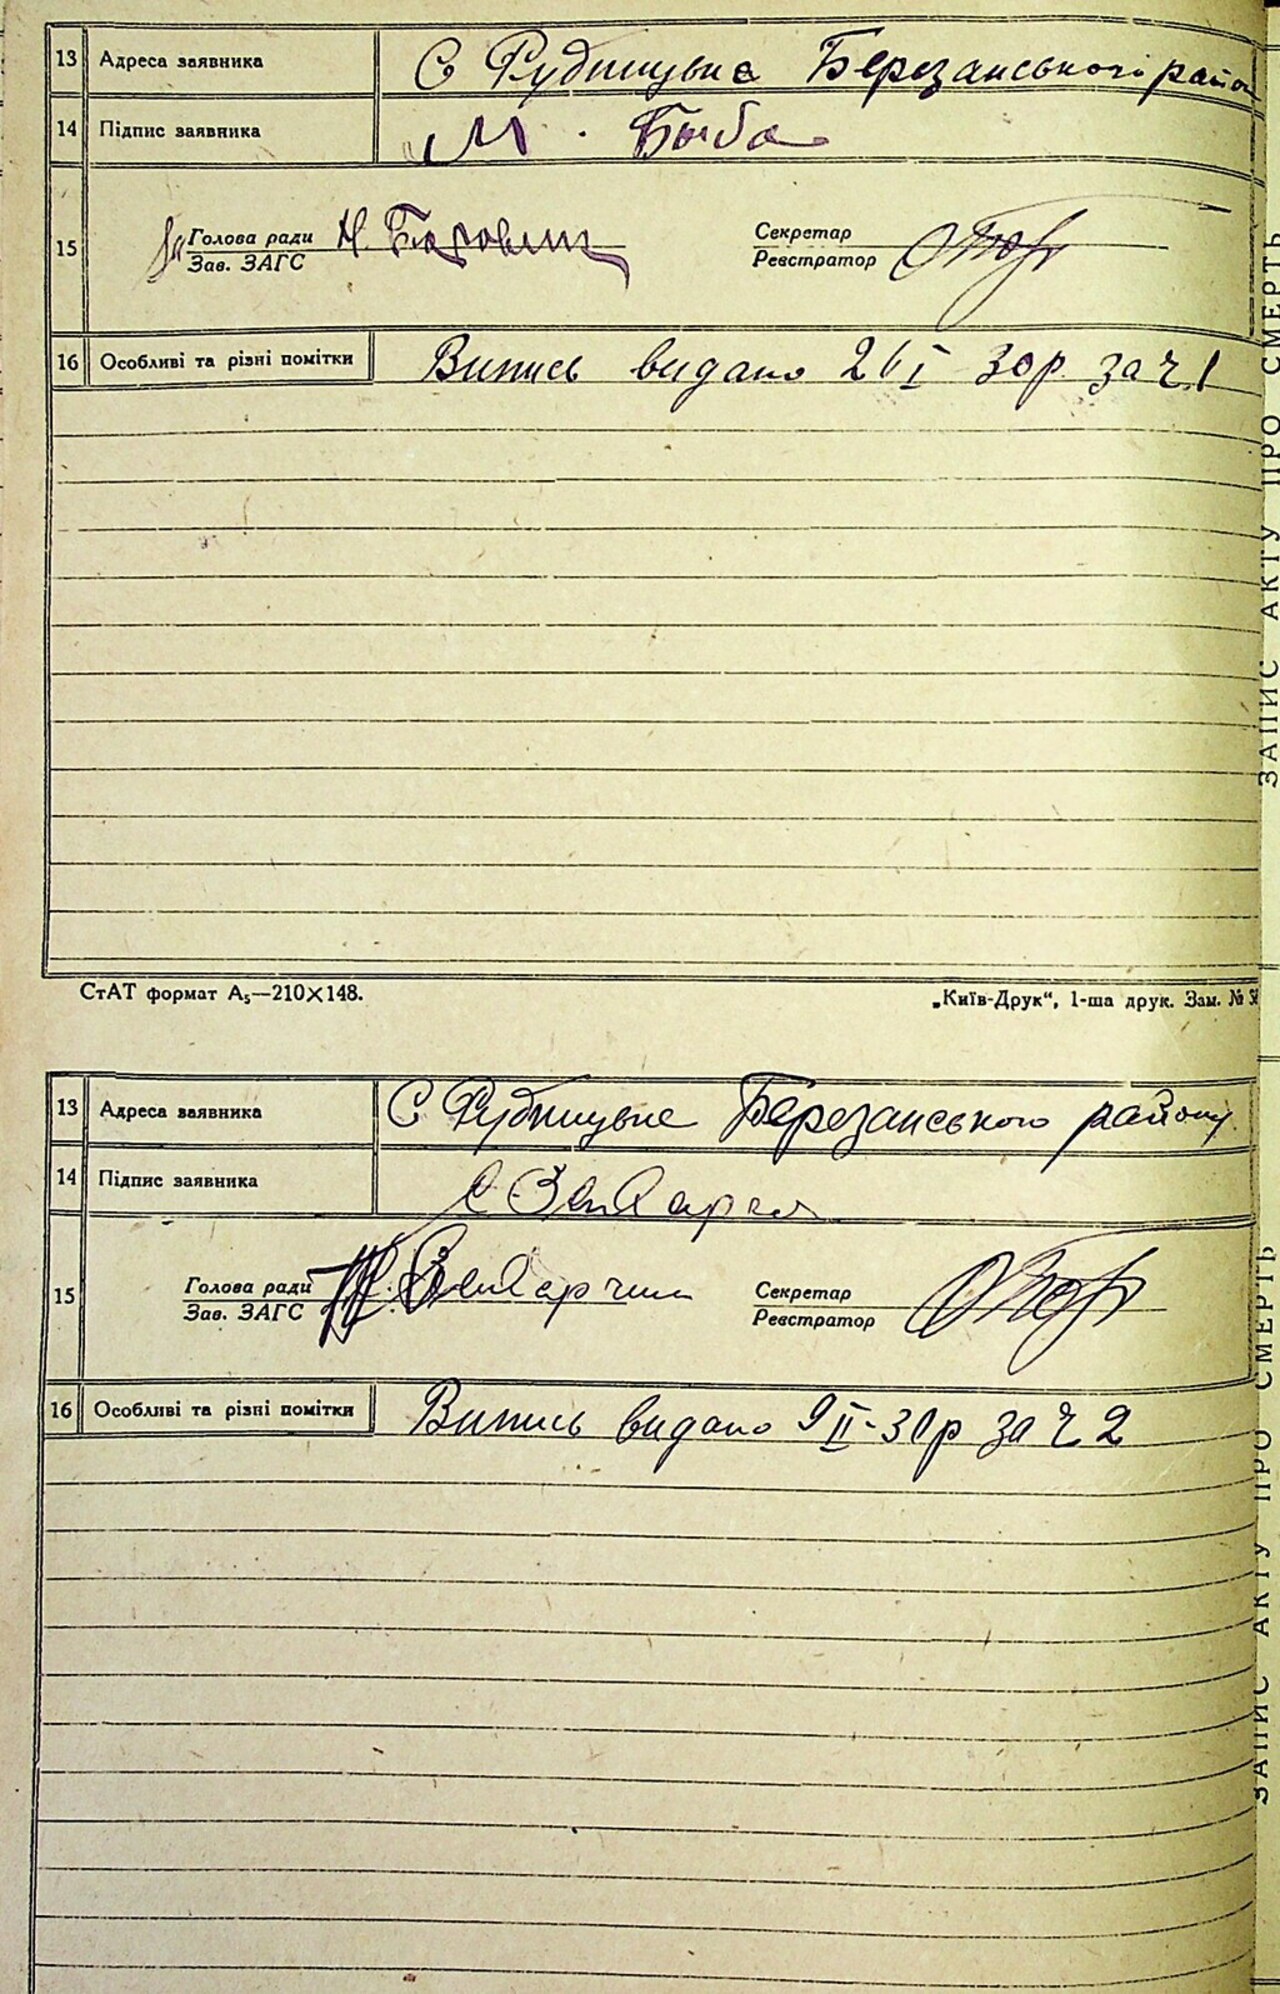 13 Адреса заявника С Рудницьке Березанського район
14 Підпис заявника М. Быба
15 за Голова ради Н. Боровик Секретар
Зав. ЗАГС Реєстратор
16 Особливі та різні помітки Випись видано 26 I 30р. за ч 1
СтАТ формат А₅—210×148. „Київ-Друк“, 1-ша друк. Зам. №
13 Адреса заявника С Рудницьке Березанського району
14 Підпис заявника
15 Голова ради Секретар
Зав. ЗАГС Реєстратор
16 Особливі та різні помітки Випись видано 9 II-30р за ч 2
ЗАПИС АКТУ ПРО СМЕРТЬ
ЗАПИС АКТУ ПРО СМЕРТЬ